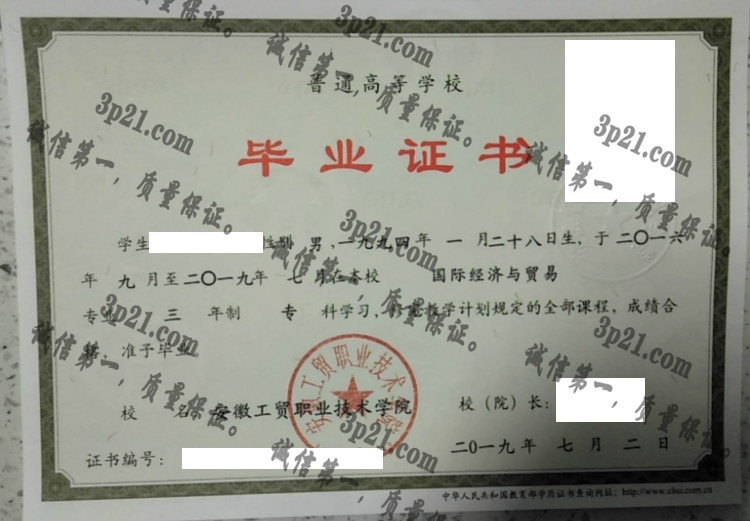 普通高等学校
毕业证书
学生 性别 男,一九九四年 一 月二十八日生,于二〇一六
年 九 月至二〇一九年 七 月在本校 国际经济与贸易
专业 三 年制 专 科学习,修完教学计划规定的全部课程,成绩合
格,准予毕业。
校 名:安徽工贸职业技术学院 校(院)长:
安徽工贸职业技术学院
证书编号: 二〇一九年 七 月 二 日
中华人民共和国教育部学历证书查询网址:http://www.chsi.com.cn
3p21.com
诚信第一,质量保证。
3p21.com
诚信第一,质量保证。
3p21.com
诚信第一,质量保证。
3p21.com
诚信第一,质量保证。
3p21.com
诚信第一,质量保证。
3p21.com
诚信第一,质量保证。
3p21.com
诚信第一,质量保证。
3p21.com
诚信第一,质量保证。